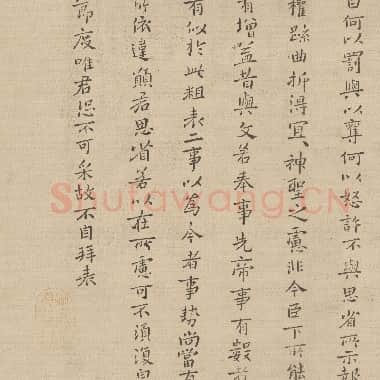 曰何以罰與以奪何以怒許不與思省所示報
權疏曲折得宜、神聖之慮非今臣下所能
有增益昔與文若奉事先帝事有數者
有似於此粗表二事以為今者事勢尚當有
所依違願君思省若以在所慮可不須復自
節度唯君恐不可采故不自拜表
Shufawang.CN